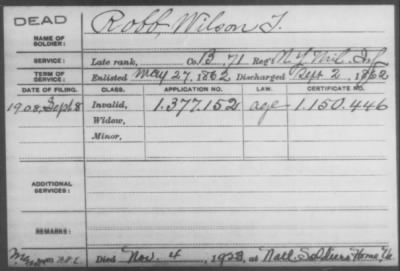 DEAD
NAME OF SOLDIER: Robb, Wilson T.
SERVICE: Late rank, Co. B, 71 Reg't N.Y. Mil. Inf
TERM OF SERVICE: Enlisted May 27, 1862 Discharged Sept 2, 1862
DATE OF FILING. CLASS. APPLICATION NO. LAW. CERTIFICATE NO.
1908, Sept 8 Invalid, 1.377.152 age 1.150.446
Widow,
Minor,
ADDITIONAL SERVICES:
REMARKS:
Died Nov. 4, 1923, at Natl. Soldiers Home Va.